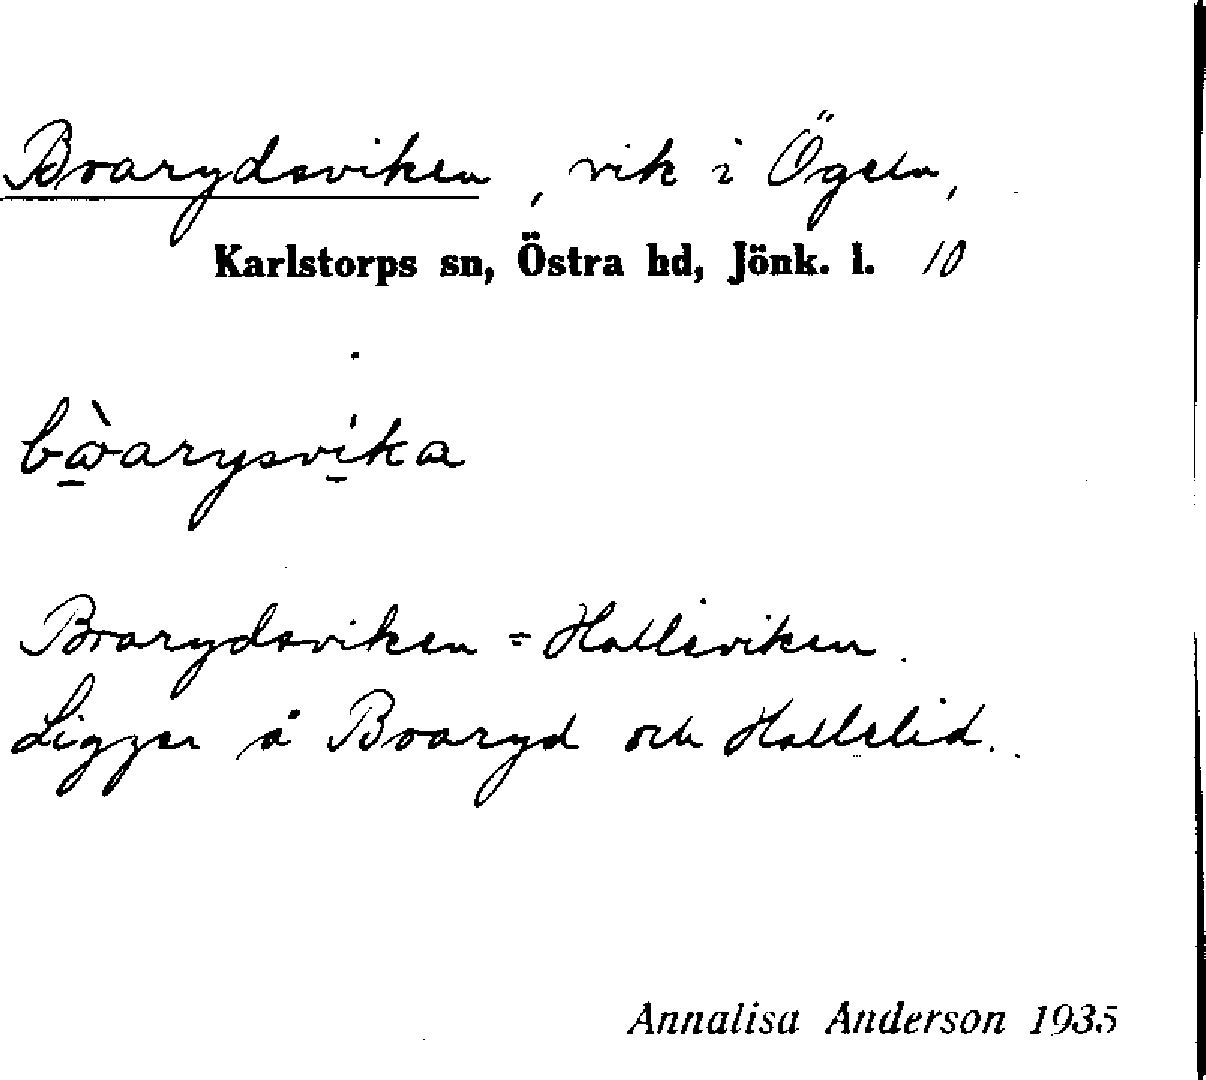 Boarydsviken, vik i Ögeln,
Karlstorps sn, Östra hd, Jönk. l. 10
bòarysvika
Boarydsviken = Hallsviken.
Ligger å Boaryd och Hallelid.
Annalisa Anderson 1935